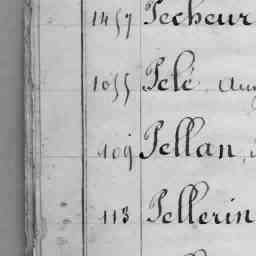 1457 Pecheur
1055 Pelé, Au
109 Pellan,
113 Pellerin